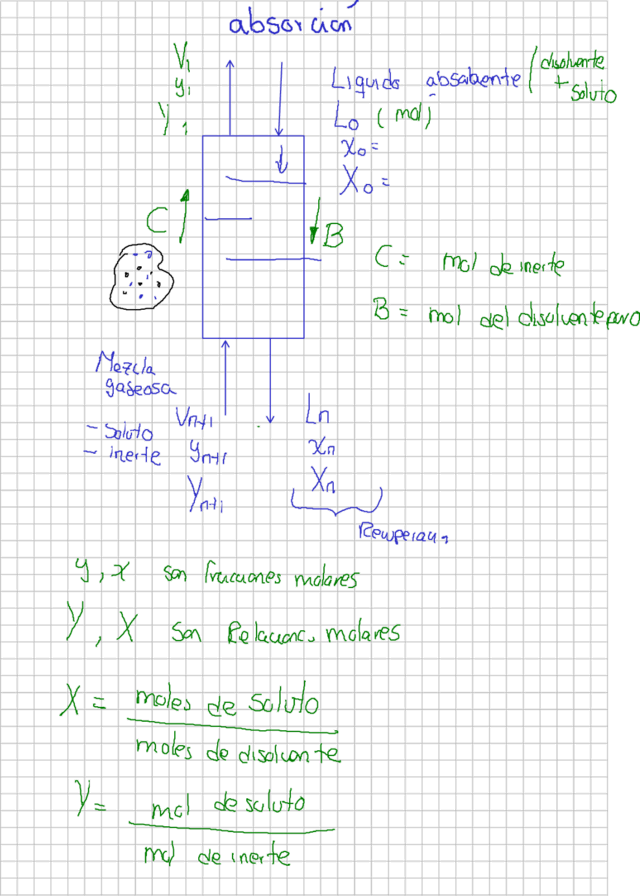 absorción
V₁
y₁
Y₁
Liquido absorbente (disolvente + soluto
L₀ (mol)
x₀ =
X₀ =
C
B
C = mol de inerte
B = mol del disolvente puro
Mezcla
gaseosa
- soluto
- inerte
Vₙ₊₁
yₙ₊₁
Yₙ₊₁
Lₙ
xₙ
Xₙ
y, x son fracciones molares
Y, X son Relacion. molares
X = moles de soluto
moles de disolvente
Y = mol de soluto
mol de inerte